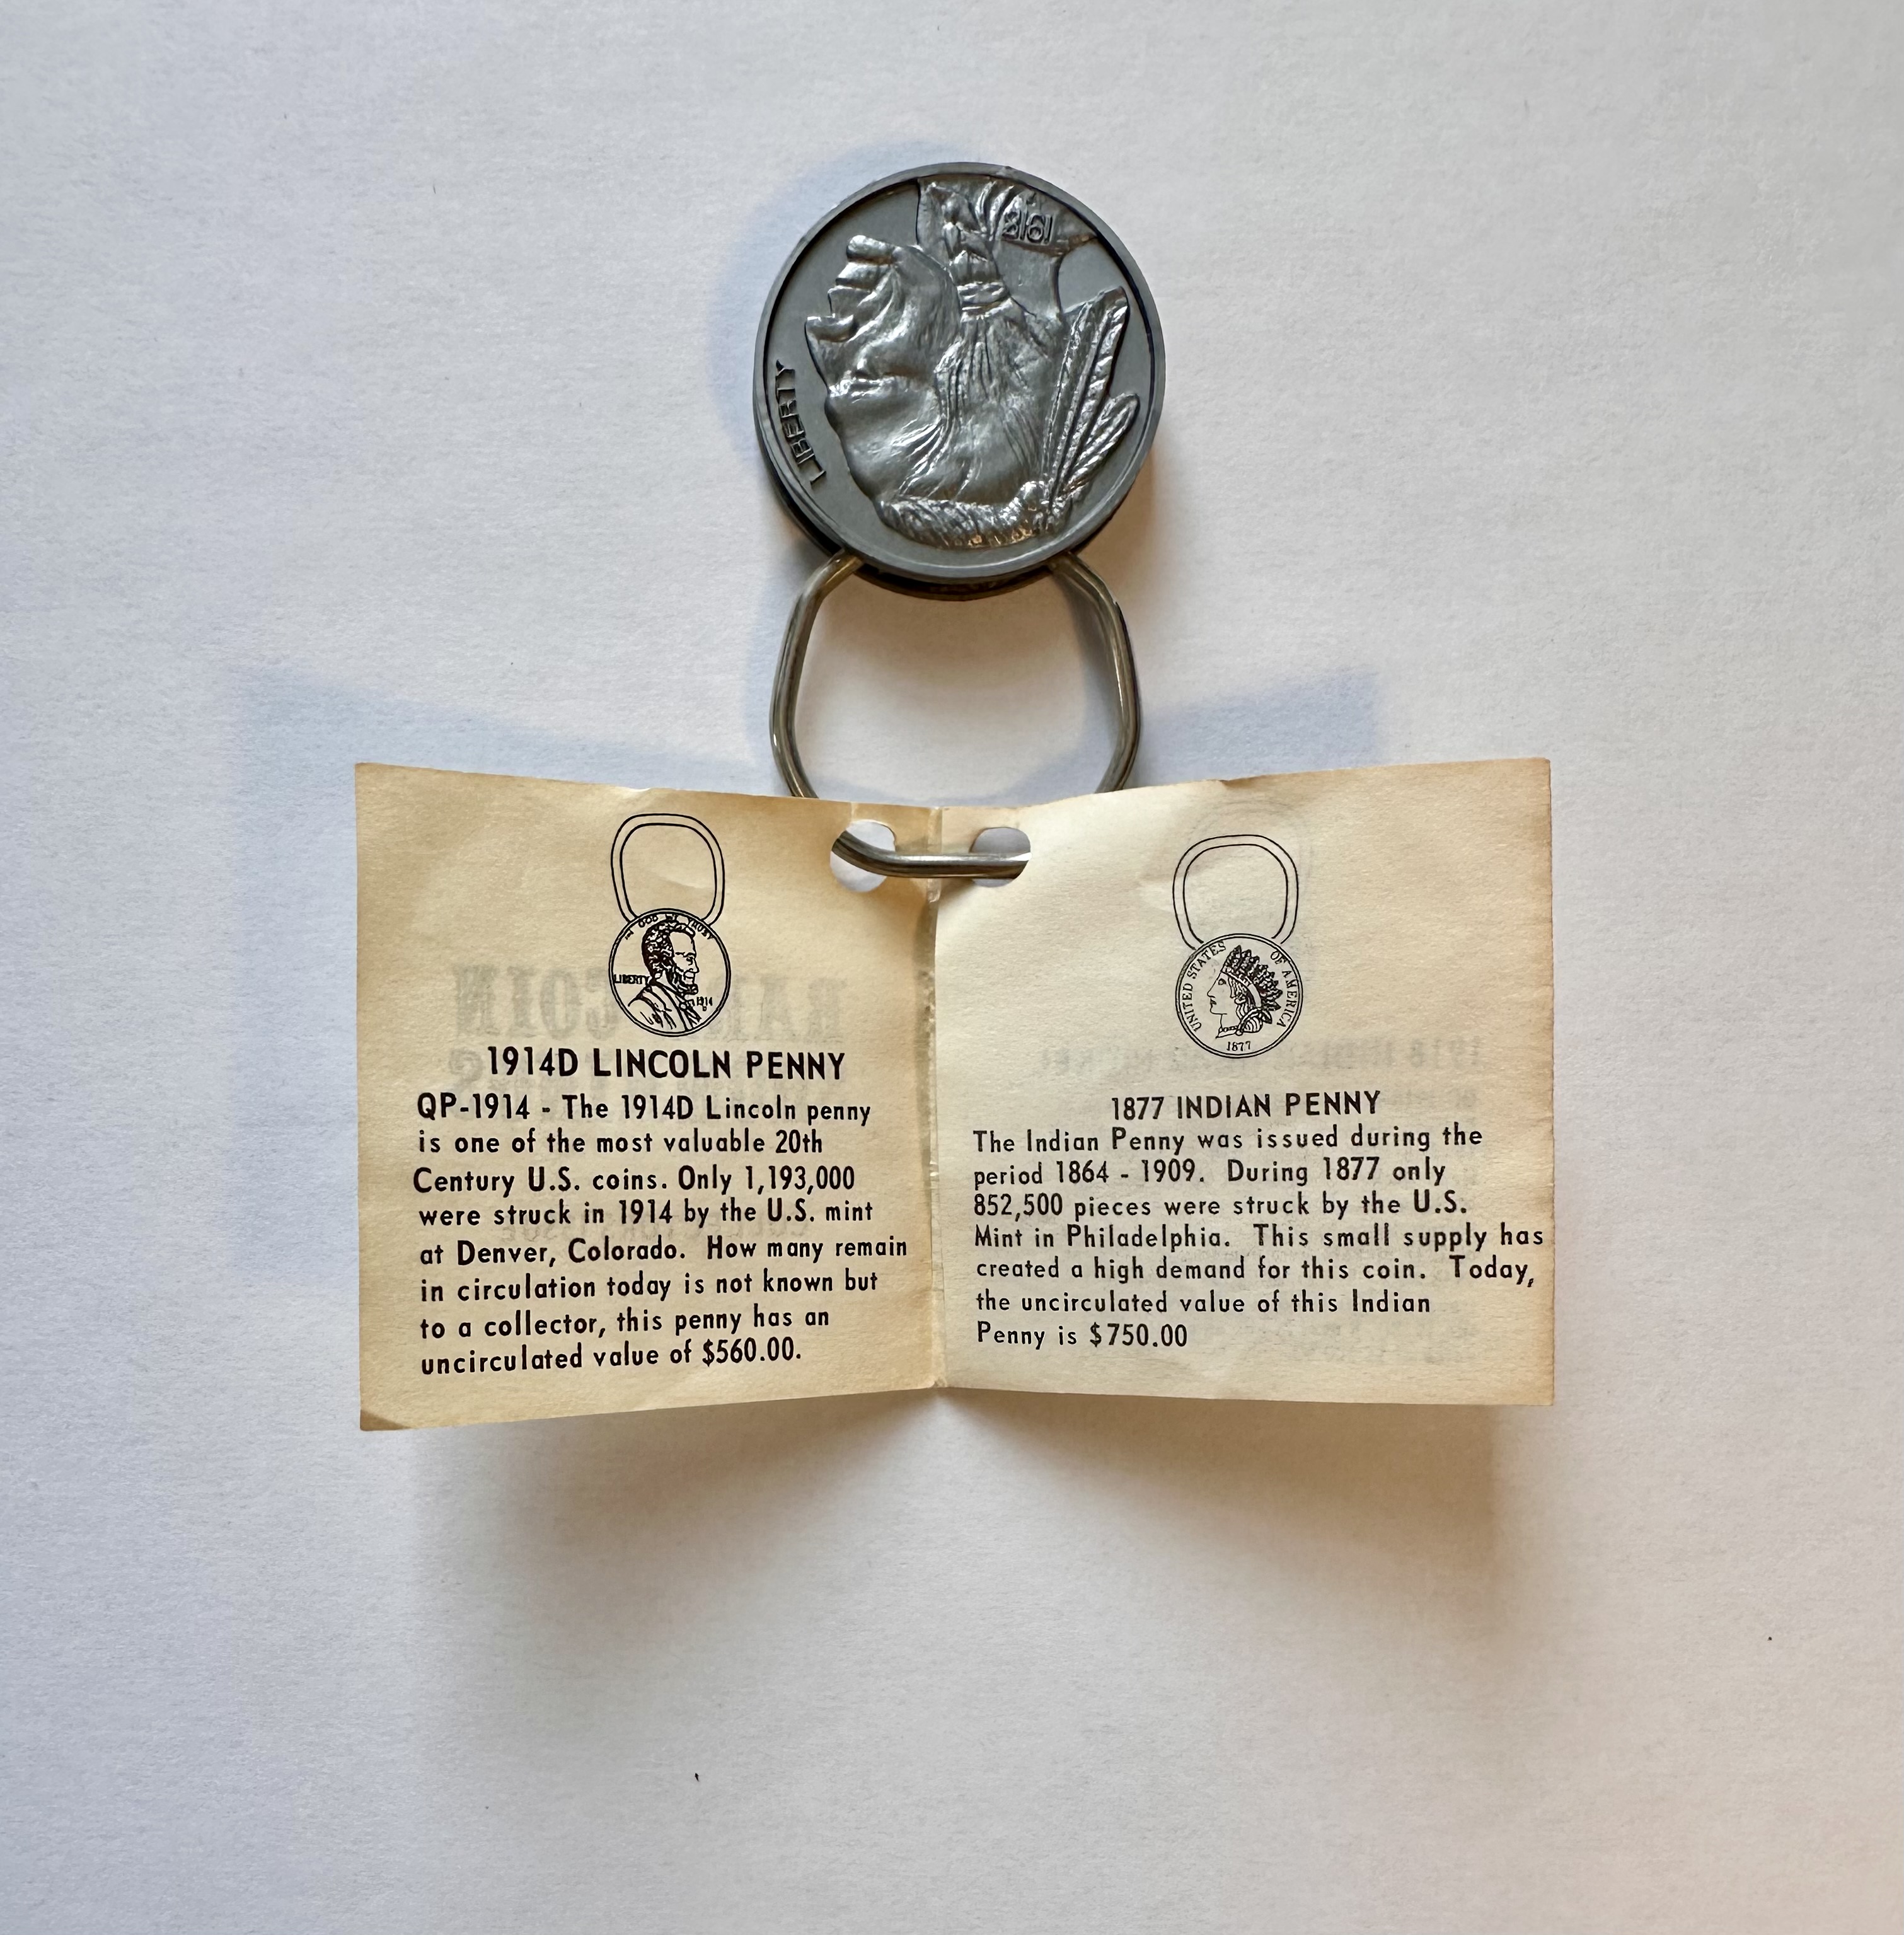 1918
LIBERTY
IN GOD WE TRUST
LIBERTY
1914
D
1914D LINCOLN PENNY
QP-1914 - The 1914D Lincoln penny
is one of the most valuable 20th
Century U.S. coins. Only 1,193,000
were struck in 1914 by the U.S. mint
at Denver, Colorado. How many remain
in circulation today is not known but
to a collector, this penny has an
uncirculated value of $560.00.
UNITED STATES OF AMERICA
1877
1877 INDIAN PENNY
The Indian Penny was issued during the
period 1864 - 1909. During 1877 only
852,500 pieces were struck by the U.S.
Mint in Philadelphia. This small supply has
created a high demand for this coin. Today,
the uncirculated value of this Indian
Penny is $750.00